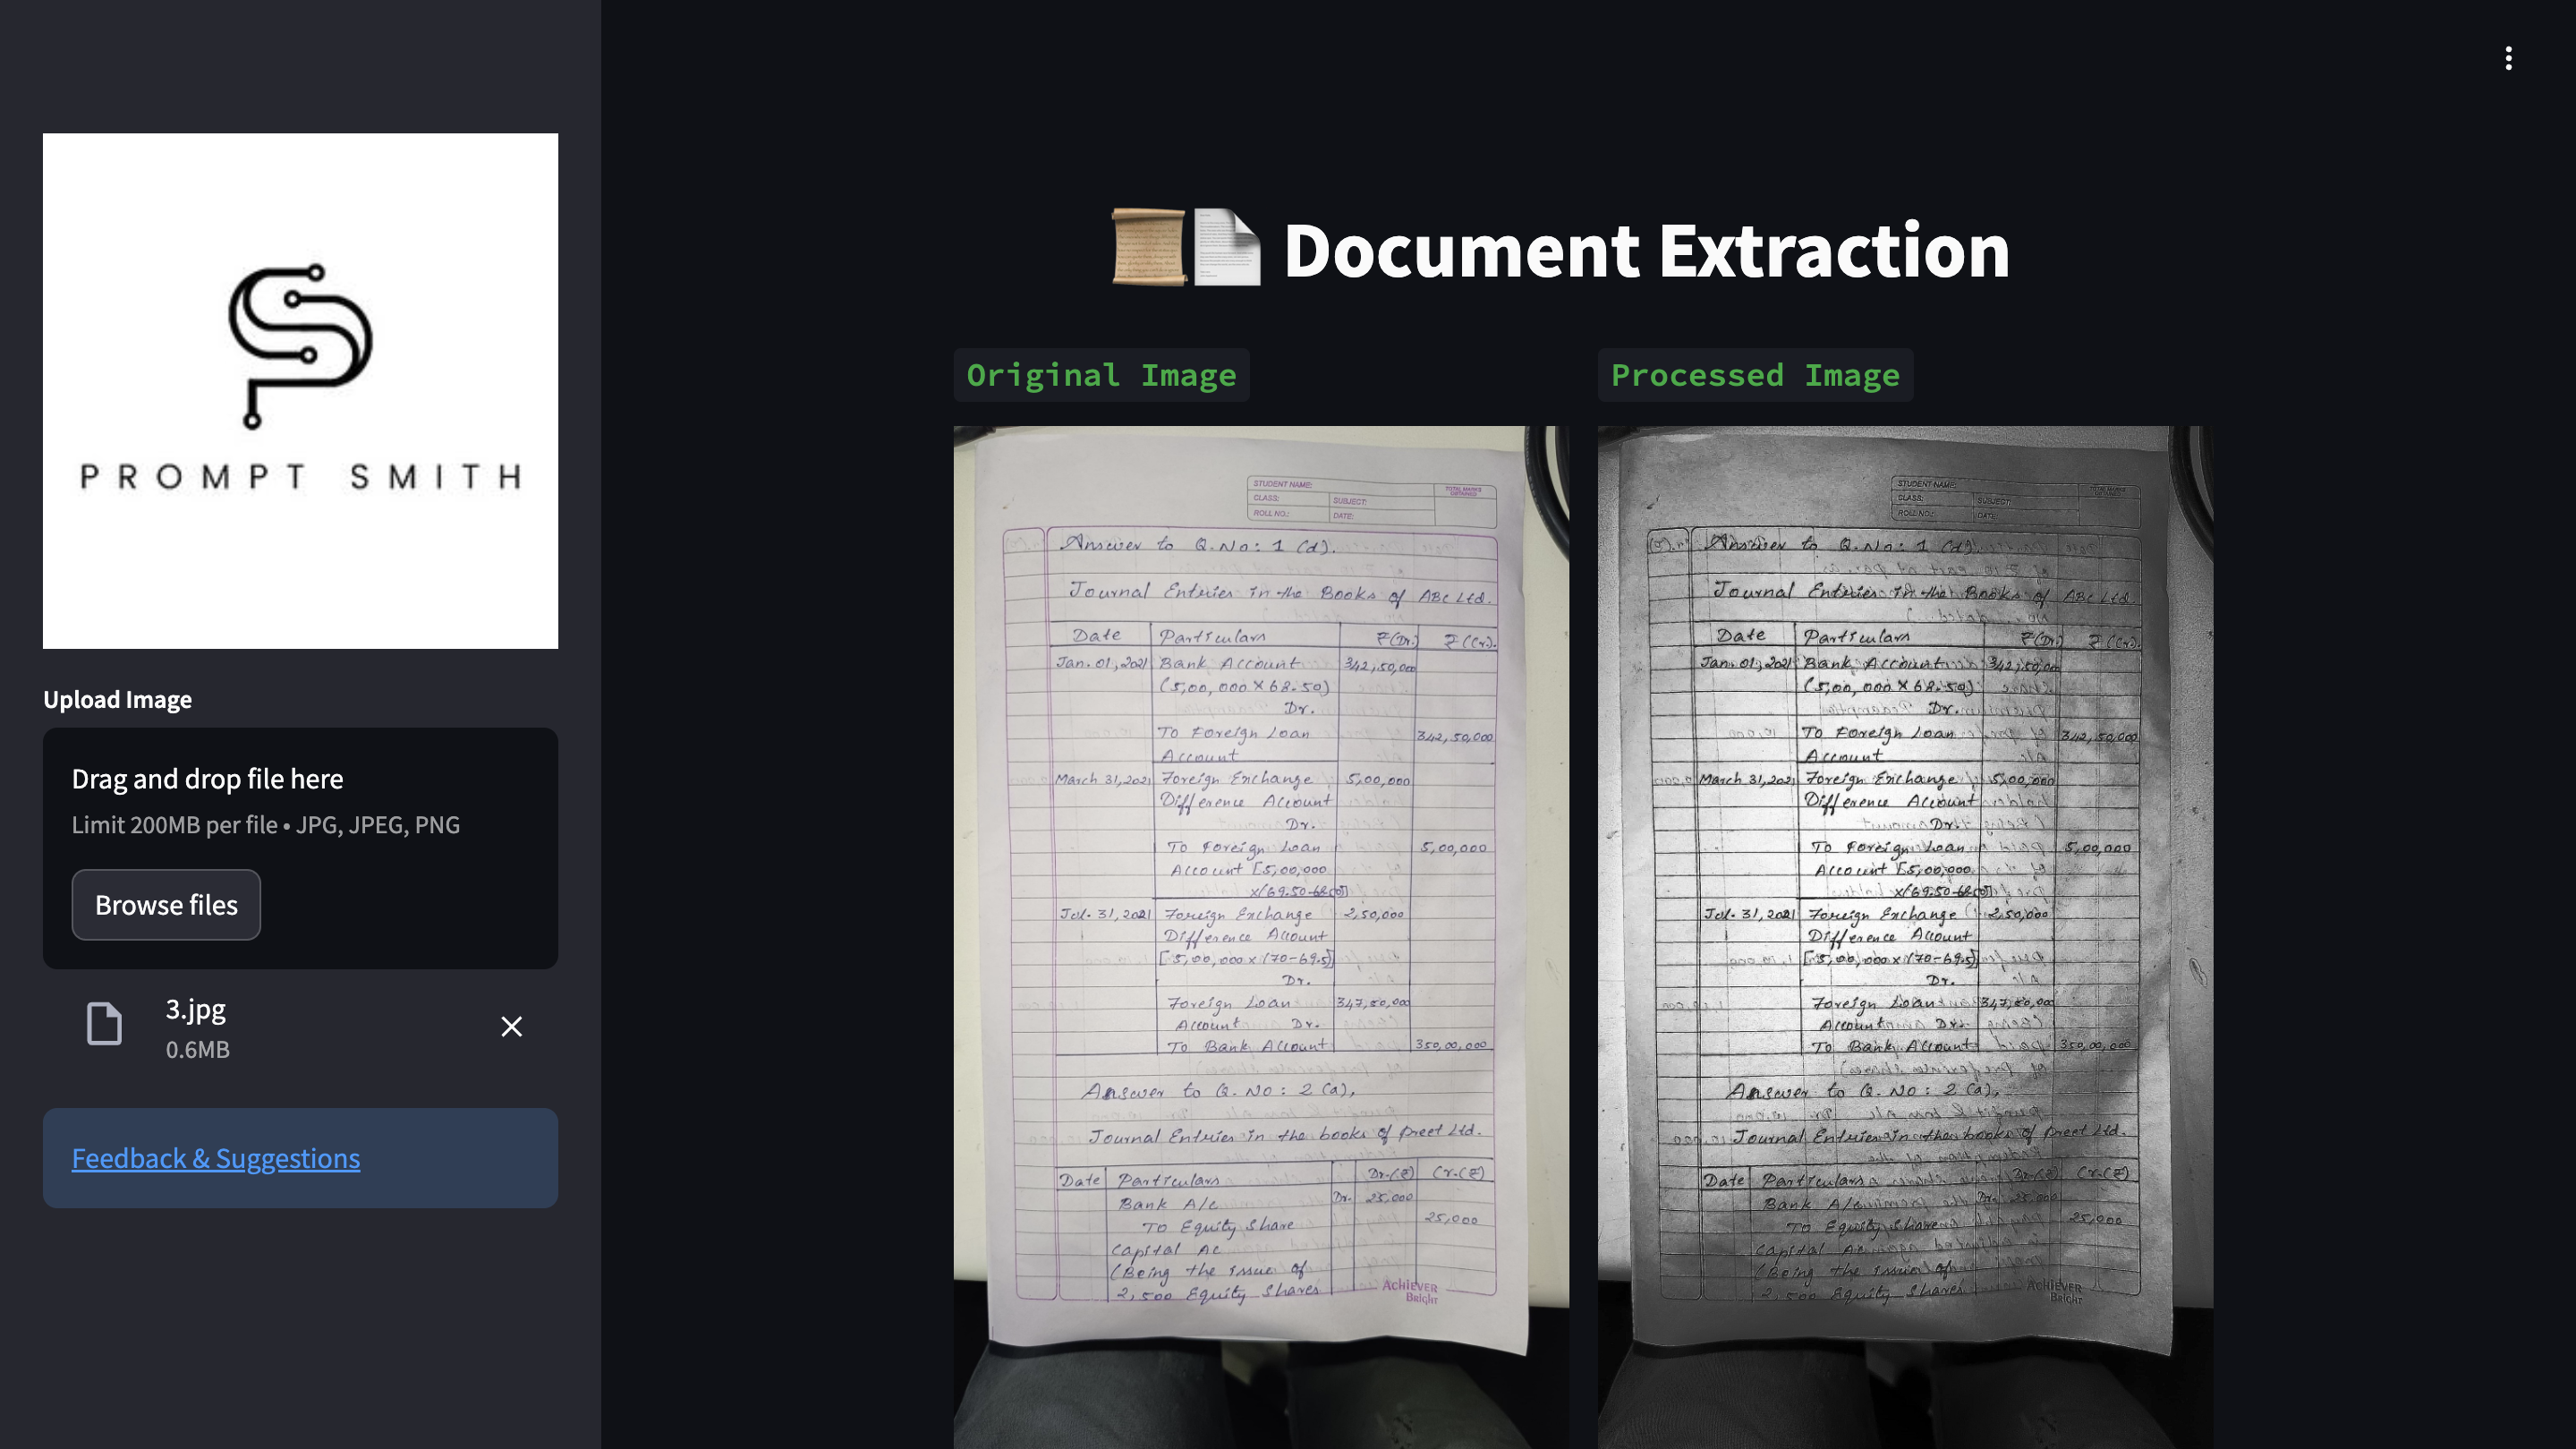 PROMPT SMITH
Upload Image
Drag and drop file here
Limit 200MB per file • JPG, JPEG, PNG
Browse files
3.jpg
0.6MB
Feedback & Suggestions
Document Extraction
Original Image
STUDENT NAME:
TOTAL MARKS OBTAINED
CLASS: SUBJECT:
ROLL NO.: DATE:
Answer to Q.No: 1 (d).
Journal Entries in the Books of ABC Ltd.
Date Particulars ₹(Dr.) ₹(Cr.).
Jan. 01, 2021 Bank Account 342,50,000
(5,00,000 X 68.50)
Dr.
To Foreign Loan 342,50,000
Account
March 31, 2021 Foreign Exchange 5,00,000
Difference Account
Dr.
To Foreign Loan 5,00,000
Account [5,00,000
x(69.50-68.50)]
Jul. 31, 2021 Foreign Exchange 2,50,000
Difference Account
[5,00,000 x (70-69.5)]
Dr.
Foreign Loan 347,50,000
Account Dr.
To Bank Account 350,00,000
Answer to Q. No: 2 (a),
Journal Entries in the books of Preet Ltd.
Date Particulars Dr.(₹) Cr.(₹)
Bank A/c Dr. 25,000
To Equity Share 25,000
Capital Ac
(Being the issue of
2,500 Equity Shares
AChiEVER
Bright
Processed Image
STUDENT NAME:
CLASS: SUBJECT:
ROLL NO.: DATE:
Answer to Q.No: 1 (d).
Journal Entries in the Books of ABC Ltd.
Date Particulars ₹(Dr.) ₹(Cr.).
Jan. 01, 2021 Bank Account 342,50,000
(5,00,000 X 68.50)
Dr.
To Foreign Loan 342,50,000
Account
March 31, 2021 Foreign Exchange 5,00,000
Difference Account
Dr.
To Foreign Loan 5,00,000
Account [5,00,000
x(69.50-68.50)]
Jul. 31, 2021 Foreign Exchange 2,50,000
Difference Account
[5,00,000 x (70-69.5)]
Dr.
Foreign Loan 347,50,000
Account Dr.
To Bank Account 350,00,000
Answer to Q. No: 2 (a),
Journal Entries in the books of Preet Ltd.
Date Particulars Dr.(₹) Cr.(₹)
Bank A/c Dr. 25,000
To Equity Share 25,000
Capital Ac
(Being the issue of
2,500 Equity Shares
AChiEVER
Bright